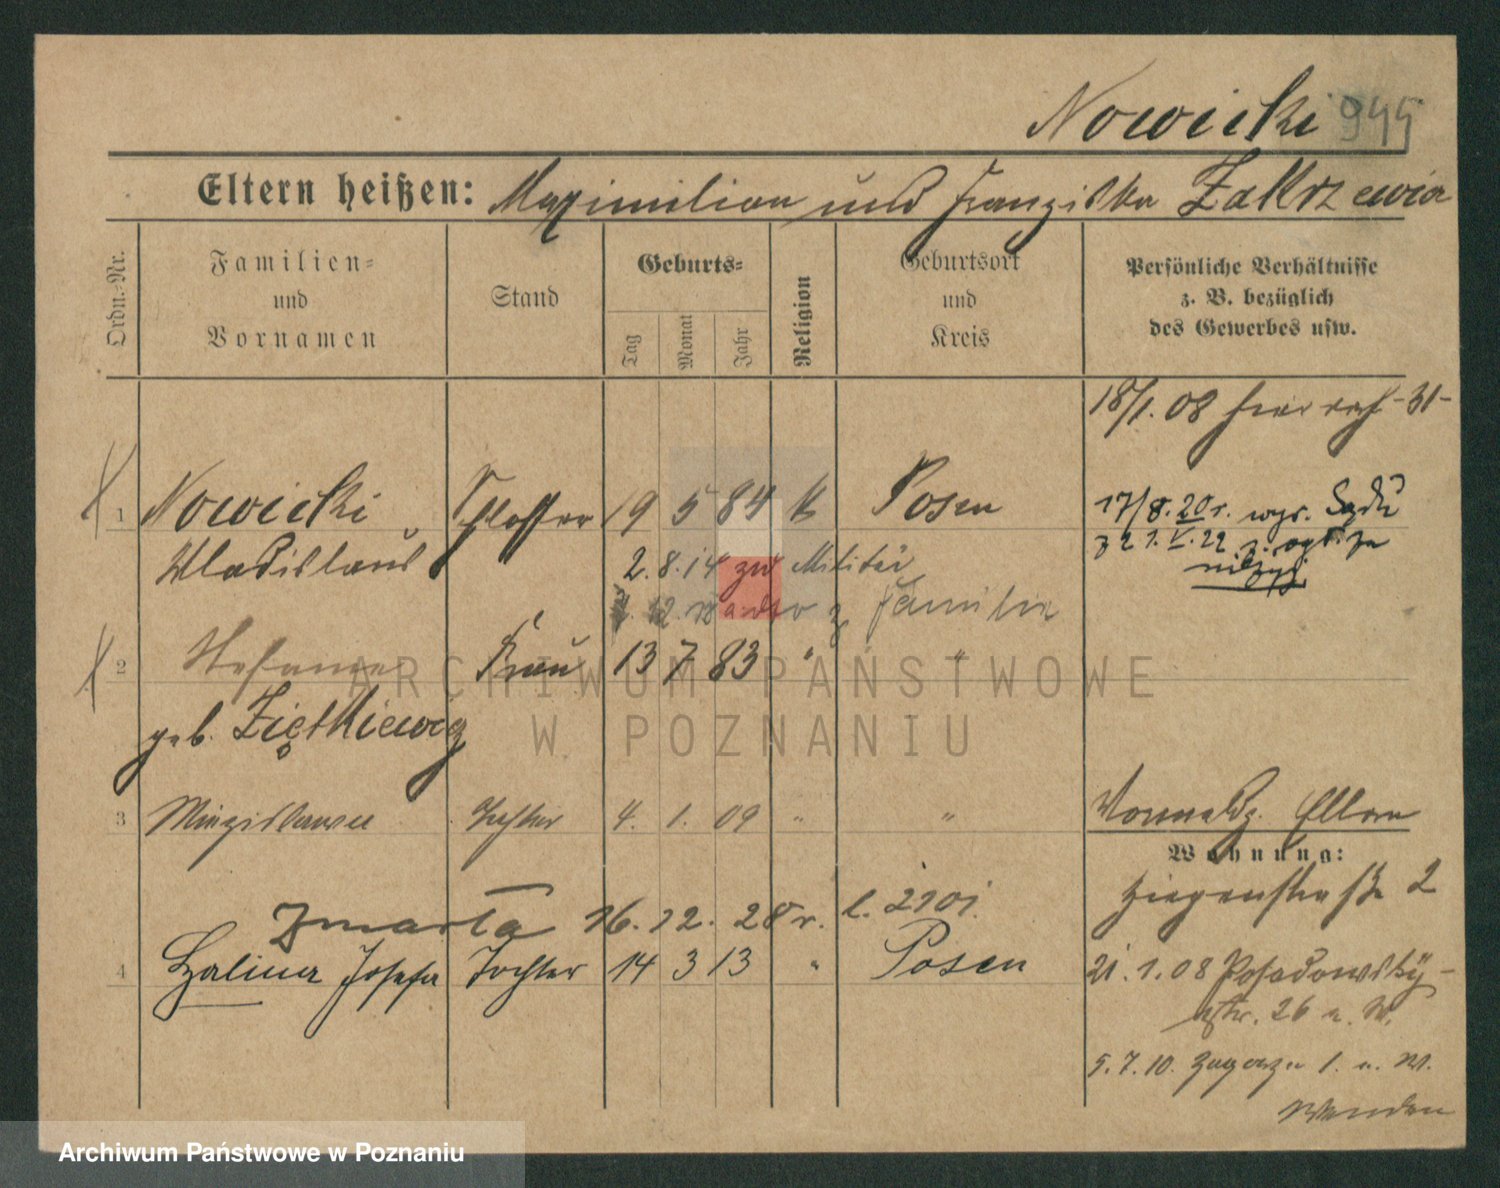 Nowicki 945
Eltern heißen: Maximilian und Franziska Zakrzewia
Ordn.-Nr.
Familien- und Vornamen
Stand
Geburts-
Tag
Monat
Jahr
Religion
Geburtsort und Kreis
Persönliche Verhältnisse
z. B. bezüglich
des Gewerbes usw.
18/1. 08 hier -31-
1 Nowicki Schlosser 19 5 84 k Posen
17/8. 20 r. wyr. Sądu
Wladislaus
2.8.14 zum Militär
z 21. V. 22
12. Familie
2 Frau 13 7 83 " "
geb. Ziętkiewicz
3 Tochter 4. 1. 09 " "
Eltern
Wohnung:
Ziegenstraße 2
Zmarła 16. 12. 28 r. l. 2101.
4 Halina Josefa Tochter 14 3 13 " Posen
21. 1. 08 Posadowsky-
str. 26 n. W.
5. 7. 10. 1. n. W.
Wenden
ARCHIWUM PAŃSTWOWE
W POZNANIU
Archiwum Państwowe w Poznaniu